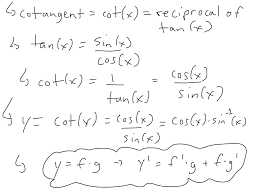 ↳ cotangent = cot(x) = reciprocal of tan(x)
↳ tan(x) = sin(x)/cos(x)
↳ cot(x) = 1/tan(x) = cos(x)/sin(x)
↳ y = cot(x) = cos(x)/sin(x) = cos(x)·sin⁻¹(x)
↳ y = f·g → y' = f'·g + f·g'